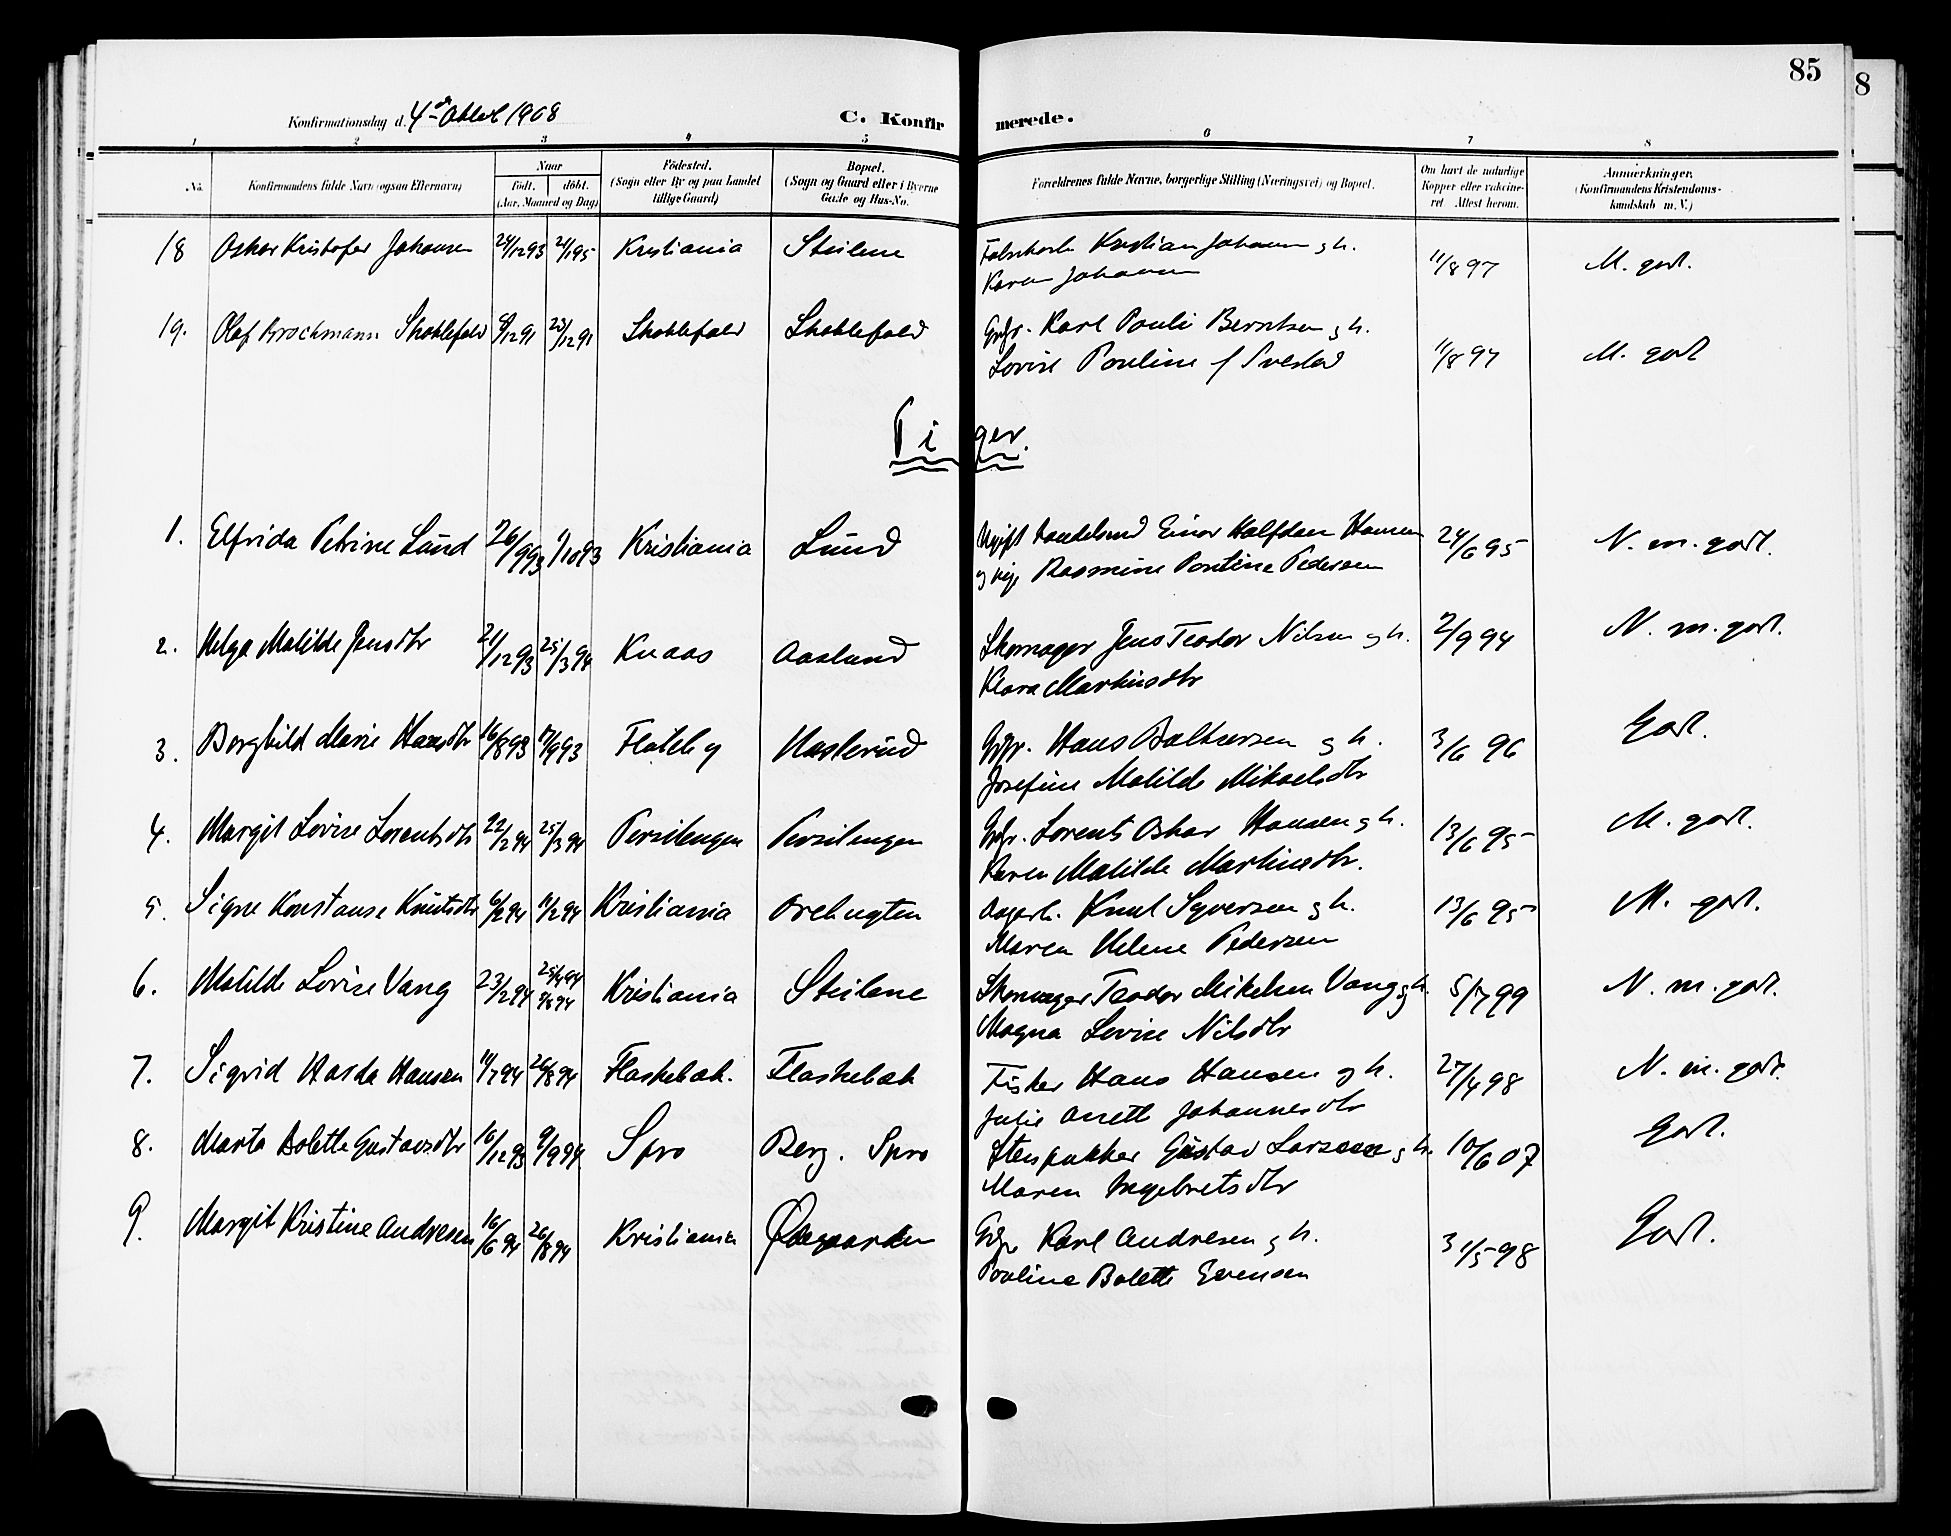 85
8
Konfirmationsdag d. 4de Oktob 1908
C. Konfirmerede.
1 2 3 4 5 6 7 8
No. Konfirmandens fulde Navn (ogsaa Efternavn) Naar født. døbt. (Aar, Maaned og Dag) Fødested. (Sogn eller By og paa Landet tillige Gaard) Bopæl. (Sogn og Gaard eller i Byerne Gade og Hus-No. Forældrenes fulde Navne, borgerlige Stilling (Næringsvei) og Bopæl. Om havt de naturlige Kopper eller vaccineret Attest herom. Anmærkninger. (Konfirmandens Kristendomskundskab m. V.)
18 Oskar Kristofer Johansen 24/12 93 21/1 95 Kristiania Steilene Kristian Johansen og h. 11/8 97 M. godt.
Karen Johansen
19. Olaf Brochmann Skoklefald /12 91 /12 91 Skoklefald Skoklefald Grbr. Karl Pauli Berntsen og h. 11/8 97 M. godt
Lovise Pouline f Svestad
Piger.
1. Elfrida Petrine Lund 26/9 93 /10 93 Kristiania Lund Ugift Handelsmd Einar Halfdan Hansen 24/6 95 N. m. godt.
og Pige Rasmine Pontine Pedersen
2. Helga Matilde Jensdtr 21/12 93 25/3 94 Knaos Aaslund Skomager Jens Teodor Nilsen og h. 2/9 94 N. m. godt.
Klara Martinsdtr
3. Borghild Marie Hansdtr 16/8 93 17/9 93 Flateby Hasterud Grbr. Hans Baltersen og h. 3/6 96 Godt.
Josefine Matilde Mikaelsdtr
4. Margit Lovise Lorentsdtr 22/2 94 25/3 94 Persilengen Persilengen Grbr. Lorents Oskar Hansen og h. 13/6 95 M. godt.
Karen Matilde Martinsdtr.
5. Signe Konstanse Knutsdtr 6/2 94 /2 94 Kristiania Knut Syversen og h. 13/6 95 M. godt.
Maren Helene Pedersen
6. Matilde Lovise Vang 23/2 94 Kristiania Steilene Skomager Teodor Mikelsen Vang og h. 5/7 99 N. m. godt.
Magna Lovise Nilsdtr
7. Sigrid Harda Hansen 11/7 94 26/8 94 Flaskebæk. Flaskebæk Fisker Hans Hansen og h. 27/4 98 N. m. godt.
Julie Anette Johannesdtr
8. Marta Bolette Gustavsdtr 16/12 93 9/9 94 Spro Berg. Spro Stenpukker Gustav Larssen og h. 10/6 07 Godt.
Maren Ingebretsdtr
9. Margit Kristine Andresen 16/6 94 26/8 94 Kristiania Ødegaarden Grbr Karl Andresen og h. 31/5 98 Godt.
Pouline Bolette Evensen